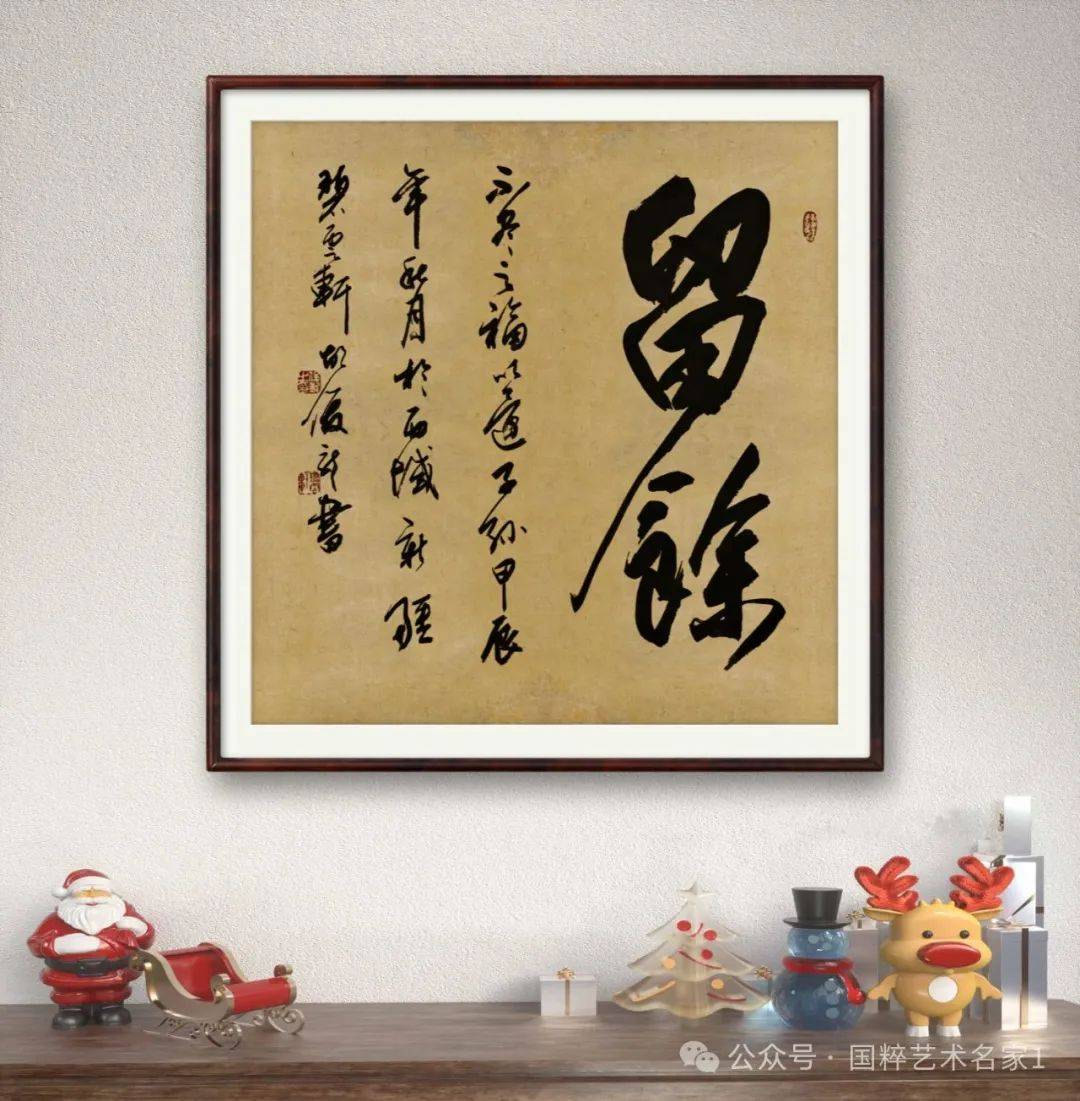 留餘
不盡之福以遺子孫甲辰
年秋月於西域新疆
碧雲軒胡書
公众号·国粹艺术名家1